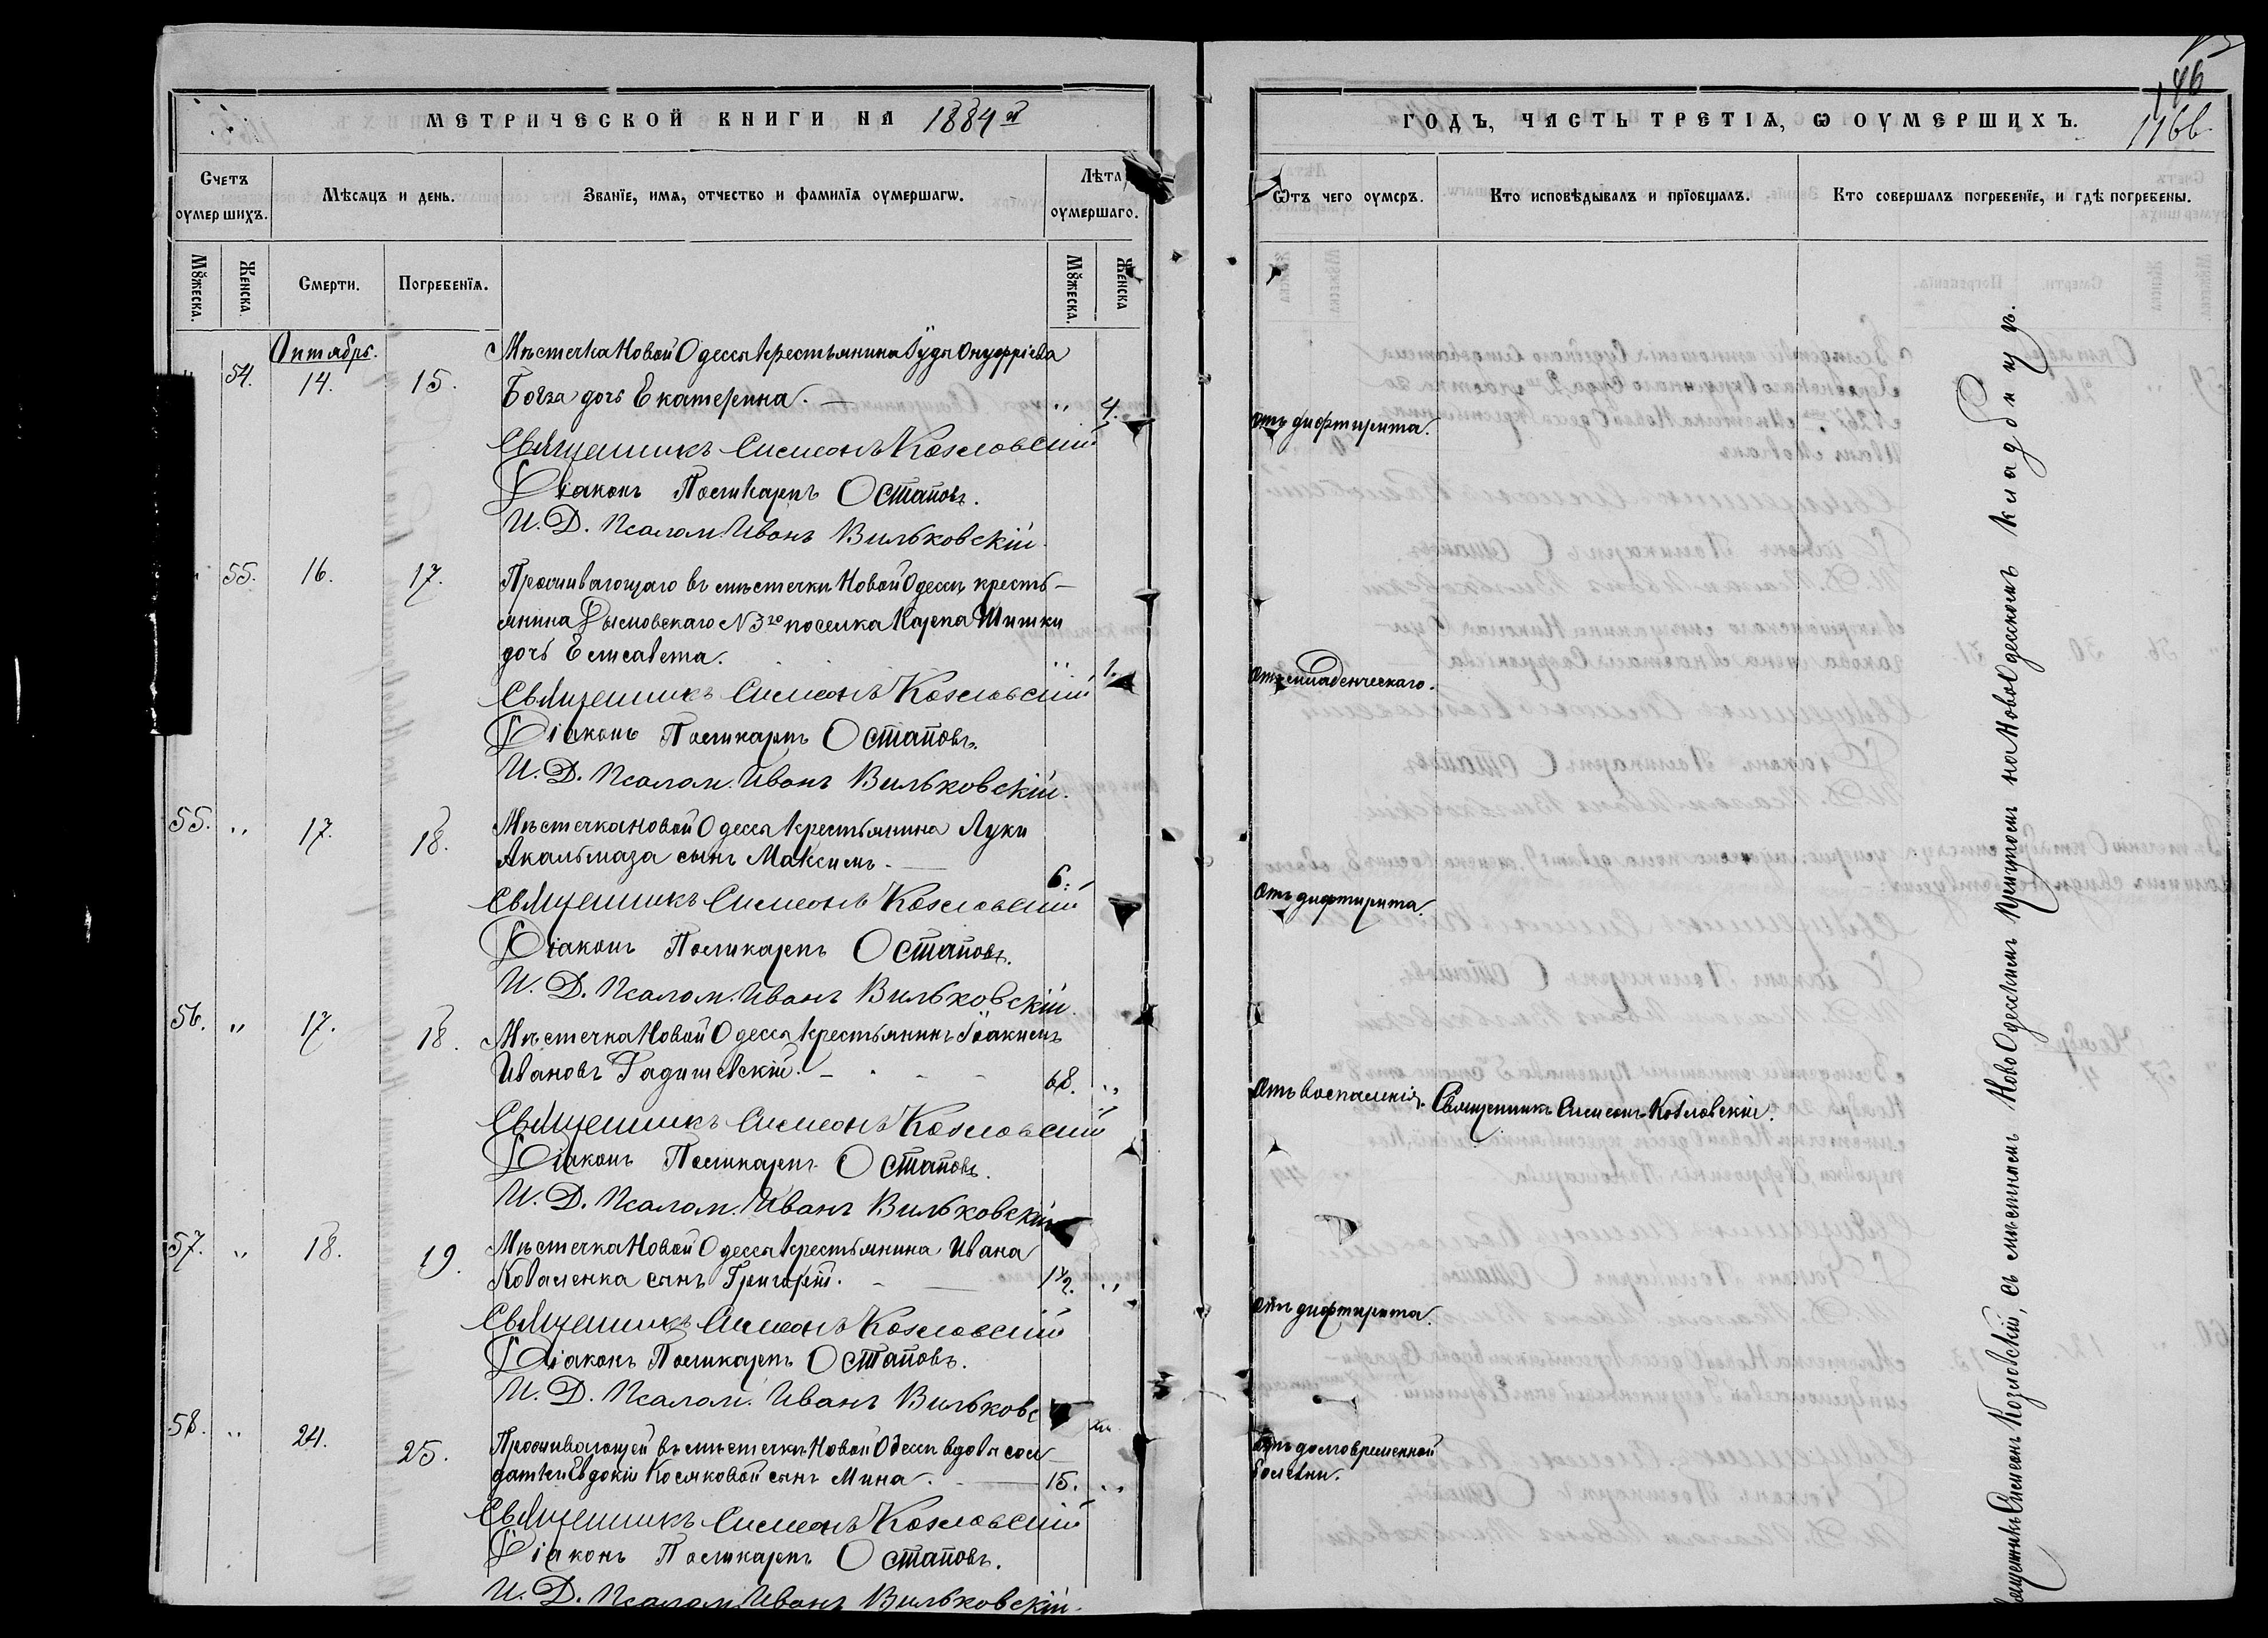 МЕТРИЧЕСКОЙ КНИГИ НА 1884й
Счетъ оумершихъ.
Мѣсяцъ и день.
Званїе, имя, отчество и фамилїя оумершагѡ.
Лѣта оумершаго.
Мꙋжеска.
Женска.
Смерти.
Погребенїя.
Мꙋжеска.
Женска
Октябрь.
54. 14. 15. Мѣстечка Новой Одессы крестьянина Іуды Онуфріева
дочь Екатерина. — „ 4.
Священникъ Симеонъ Козловскій
Діаконъ Поликарпъ Остаповъ.
И. Д. Псалом. Иванъ Вильковскій.
55. 16. 17. Проживающаго въ мѣстечкѣ Новой Одессѣ кресть-
янина N 3го поселка Карпа Шишки
дочь Елисавета. „ 1.
Священникъ Симеонъ Козловскій
Діаконъ Поликарпъ Остаповъ.
И. Д. Псалом. Иванъ Вильковскій.
55. „ 17. 18. Мѣстечка Новой Одессы крестьянина Луки
Акальмаза сынъ Максимъ. — 6.
Священникъ Симеонъ Козловскій
Діаконъ Поликарпъ Остаповъ.
И. Д. Псалом. Иванъ Вильковскій.
56. „ 17. 18. Мѣстечка Новой Одессы крестьянинъ Іоакимъ
Ивановъ Гадишевскій. 68. „
Священникъ Симеонъ Козловскій
Діаконъ Поликарпъ Остаповъ.
И. Д. Псалом. Иванъ Вильковскій
57. „ 18. 19. Мѣстечка Новой Одессы крестьянина Ивана
Коваленка сынъ Григорій. 1½. „
Священникъ Симеонъ Козловскій
Діаконъ Поликарпъ Остаповъ.
И. Д. Псалом. Иванъ Вильковс
58. „ 24. 25. Проживающей въ мѣстечкѣ Новой Одессѣ вдовы сол-
датки Евдокіи Косяковой сынъ Мина. — 15. „
Священникъ Симеонъ Козловскій
Діаконъ Поликарпъ Остаповъ.
И. Д. Псалом. Иванъ Вильковскій.
146
ГОДЪ, ЧАСТЬ ТРЕТІЯ, Ѡ ОУМЕРШИХЪ.
Ѿтъ чего оумеръ.
Кто исповѣдывалъ и прїобщалъ.
Кто совершалъ погребенїе, и гдѣ погребены.
Отъ дифтирита.
Отъ младенческаго.
Отъ дифтирита.
Отъ воспаленія. Священникъ Симеонъ Козловскій.
Отъ дифтирита.
Отъ долговременной
болѣзни.
Священникъ Симеонъ Козловскій, съ мѣстнымъ Ново Одесскимъ причтомъ на Ново Одесскомъ кладбищѣ.